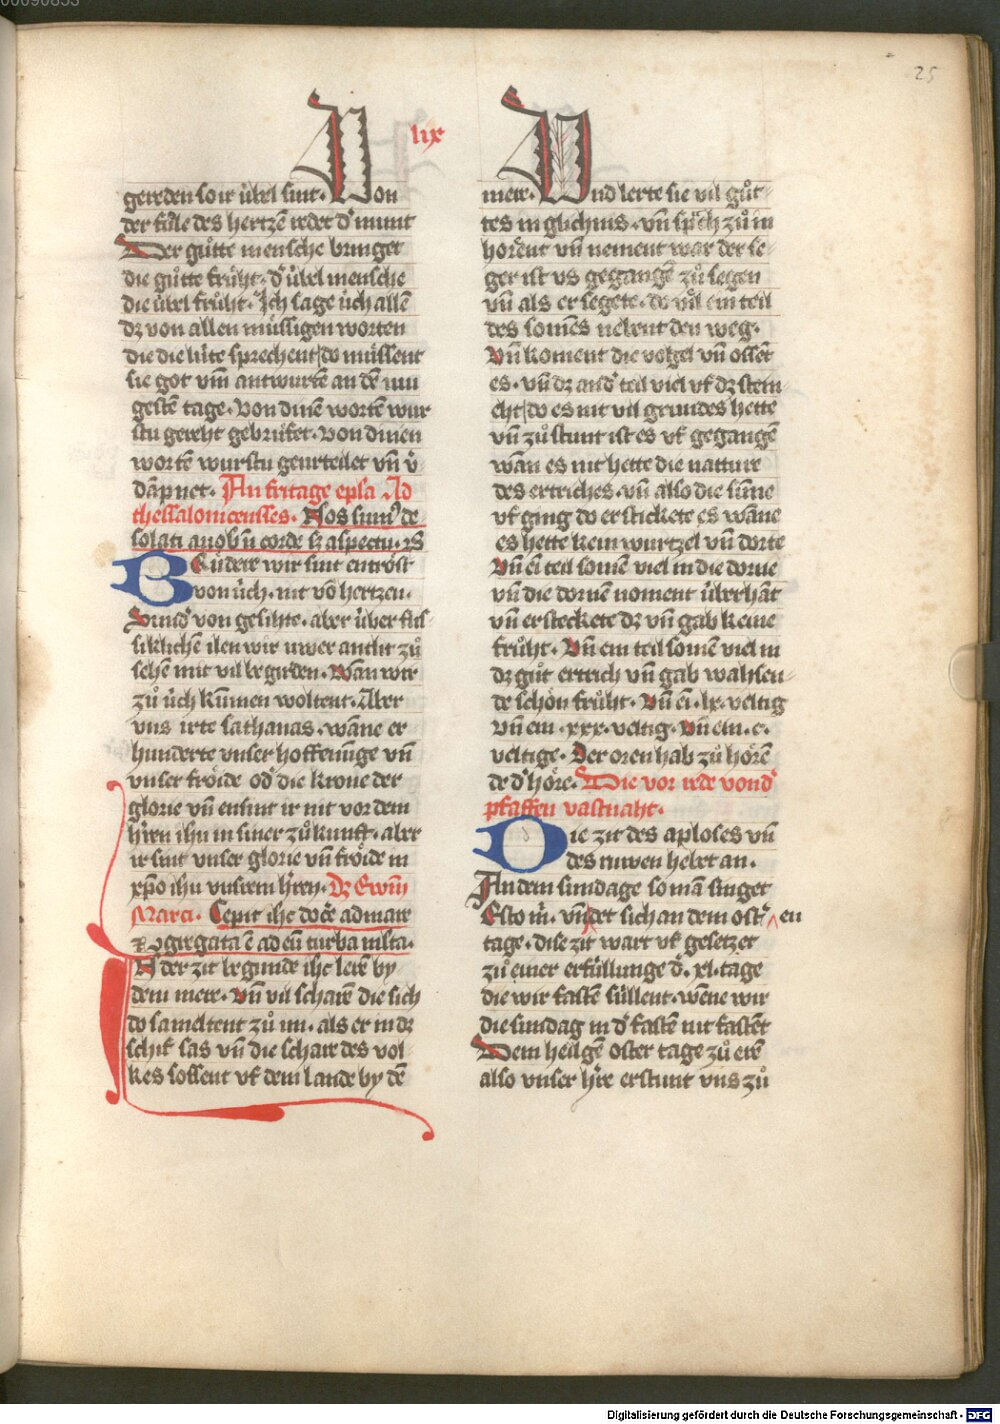 00090853
25
lix
gereden so ir úbel sint. Von
der fúlle des hertzē redet dʼ munt
Der gůtte mensche bringet
die gůtte frúht. dʼ úbel mensche
die úbel frúht. Ich sage úch allē
dz von allen müssigen worten
die die lúte sprechent do müssent
sie got vm̄ antwurtē an dē iun
gestē tage. Von dinē wortē wur
stu gereht gebrüfet. von dinen
wortē wurstu geurteilet vn̄ v̓
dāpnet. An fritage epl̄a Ad
thessalonicenses. Nos sumʼ de
solati a uob̄ n̄ corde s̄z aspectu. rs̄
Brúdere wir sint entröst
von úch. nit vō hertzen.
Sundʼ von gesihte. aber úber flis
siklichē ilen wir uwer antlit zů
sehen mit vil begirden. Wan wir
zů úch kumen woltent. Aber
vns irte sathanas. wāne er
hunderte vnser hoffenūge vn̄
vnser fröide odʼ die krone der
glorie vn̄ ensint ir nit vor dem
h̄ren ih̄u in siner zůkunft. aber
ir sint vnser glorie vn̄ fröide in
xp̄o ih̄u vnserem h̄ren. Dz Ewm̄
Marci. Cepit ih̄c docē ad mare
⁊ ꝯgregata ē ad eū turba mlta.
In der zit begunde ih̄c lerē by
dem mere. vn̄ vil scharē die sich
do sameltent zů im. als er in dz
schif sas vn̄ die schare des vol
kes sossent vf dem lande by dē
mere. Vnd lerte sie vil gůt
tes in glichnis. vn̄ sp̄ch zů in
hörent vn̄ nement war der se
ger ist vs gegangē zů segen
vn̄ als er segete. do viel ein teil
des somēs nebent den weg.
Vn̄ koment die vogel vn̄ ossēt
es. vn̄ dz andʼ teil viel vf dz stein
eht do es nit vil grundes hette
vn̄ zů stunt ist es vf gegangē
wān es nit hette die nature
des ertriches. vn̄ also die sūne
vf ging do erstickete es wāne
es hette kein wurtzel vn̄ dorte
Vn̄ ei teil somē viel in die dorne
vn̄ die dornē noment úberhāt
vn̄ ersteckete dz vn̄ gab keine
frúht. Vn̄ ein teil somē viel in
dz gůt ertrich vn̄ gab wahsen
de schön frúht. Vn̄ ei. lx. veltig
vn̄ ein .xxx. veltig. Vn̄ ein .c.
veltige. Der oren hab zů hörē
de dʼ höre. Die vor rede vondʼ
pfaffen vastnaht.
Die zit des aploses vn̄
des nuwen hebet an.
An dem sundage so mā singet
Esto m̄. vn̄ det sich an dem ostʼ en
tage. dise zit wart vf gesetzet
zů einer erfüllunge dʼ. xl. tage
die wir fastē süllent. wēne wir
die sundag in dʼ fastē nit fastēt
Dem heilgē oster tage zů erē
also vnser h̄re erstunt vns zů
Digitalisierung gefördert durch die Deutsche Forschungsgemeinschaft - DFG